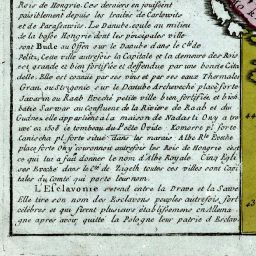 Rois de Hongrie. Ces derniers en jouissent
paisiblement depuis les traitez de Carlowits
et de Passarowits. Le Danube coule au milieu
de la basse Hongrie dont les principales ville
sont Bude ou Offen sur le Danube dans le C.té de
Pelitz, Cette ville autrefois la Capitale et la demeure des Rois
est grande et bien fortifiée et deffendue par une bonne Cita
delle. Elle est connüe par ses vins et par ses eaux Thermales
Gran, ou Strigonis sur le Danube Archeveché place forte
Javarin ou Raab Eveché petite ville bien fortifiée, et bien
batie Javrar au Confluens de la Riviere de Raab et du
elle appartient a la maison de Nadasti Ony a trou
vé en 1608 le tombeau du Poëte Ovide Komorre pl forte
Canischa pl. forte située dans un marais Albe R.le Eveché
place forte On y couronnoit autrefois les Rois de Hongrie c'est
ce qui lui a fait donner le nom d'Albe Royale. Cinq Egli
ses Eveché dans le C.té de Zigeth toutes ces villes sont Capi
tales du Comté qui porte leur nom.
L'Esclavonie s'etend entre la Drave et la Save
Elle tire son nom des Esclavons peuples autrefois fort
celebres et qui firent plusieurs établissemens en Allema
gne apres avoir quitté la Pologne leur patrie d'Esclav